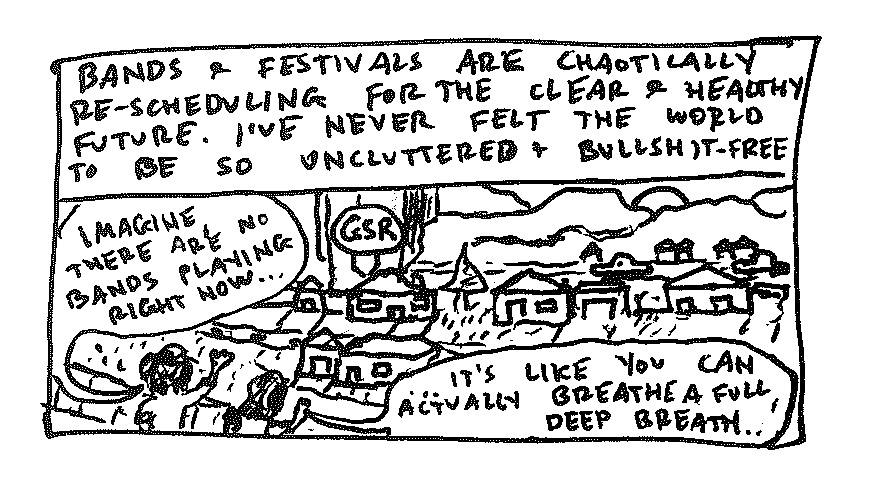 BANDS & FESTIVALS ARE CHAOTICALLY
RE-SCHEDULING FOR THE CLEAR & HEALTHY
FUTURE. I'VE NEVER FELT THE WORLD
TO BE SO UNCLUTTERED & BULLSHIT-FREE
IMAGINE
THERE ARE NO
BANDS PLAYING
RIGHT NOW...
GSR
IT'S LIKE YOU CAN
ACTUALLY BREATHE A FULL
DEEP BREATH..